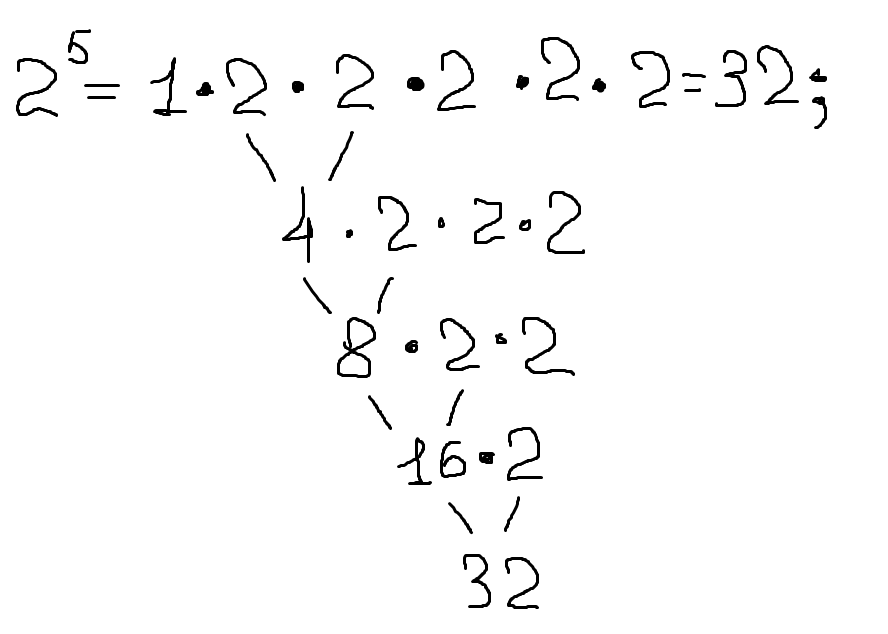 2⁵ = 1 · 2 · 2 · 2 · 2 · 2 = 32;
4 · 2 · 2 · 2
8 · 2 · 2
16 · 2
32